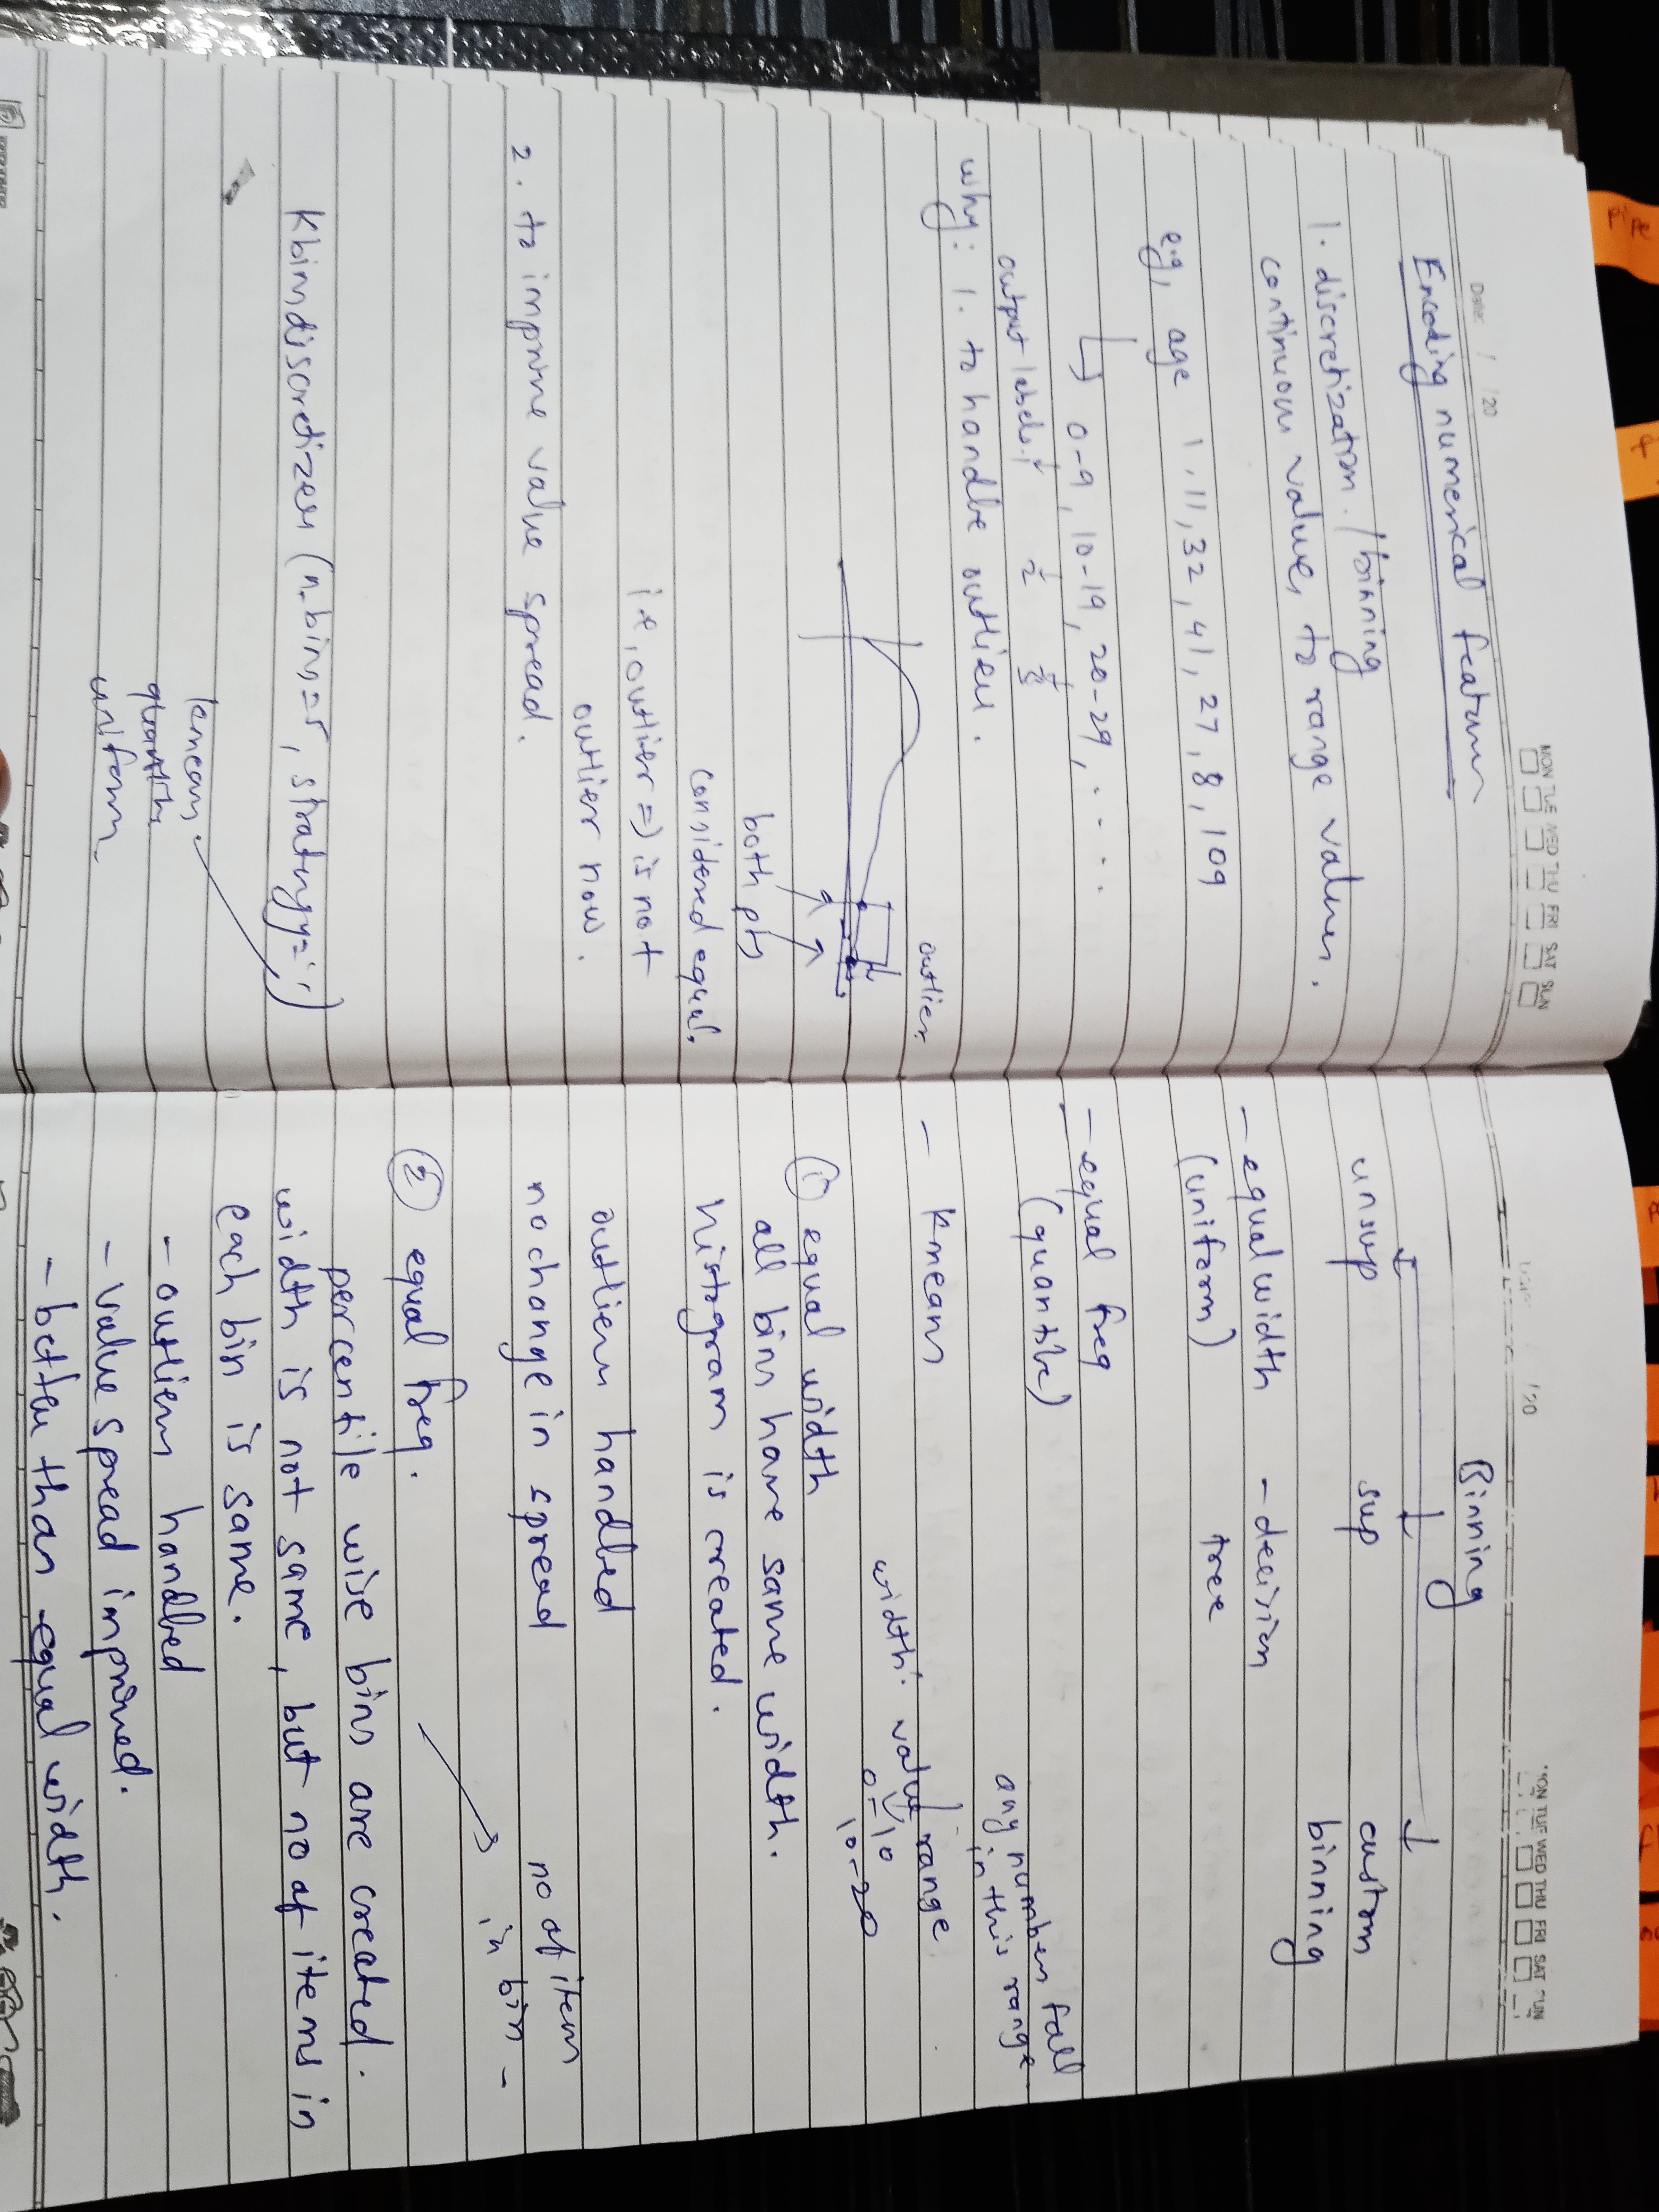 Date: / /20
MON TUE WED THU FRI SAT SUN
Encoding numerical features
1. discretization / binning
continuous values to range values.
eg, age 1, 11, 32, 41, 27, 8, 109
0-9, 10-19, 20-29, . . . .
output labels: 1 2 3
why: 1. to handle outliers.
outlier
both pts
considered equal.
i.e, outlier => is not
outlier now.
2. to improve value spread.
Kbindiscretizer (n-bins=5, stratergy='')
kmeans
quantile
uniform
/20
MON TUE WED THU FRI SAT SUN
Binning
unsup sup custom
binning
- equal width - decision
(uniform) tree
- equal freq
(quantile)
any number fall
in this range.
- kmeans
width: value range
0-10
10-20
① equal width
all bins have same width.
histogram is created.
outliers handled
no change in spread
no of items
in bin -
② equal freq.
percentile wise bins are created.
width is not same, but no of items in
each bin is same.
- outliers handled
- value spread improved.
- better than equal width.